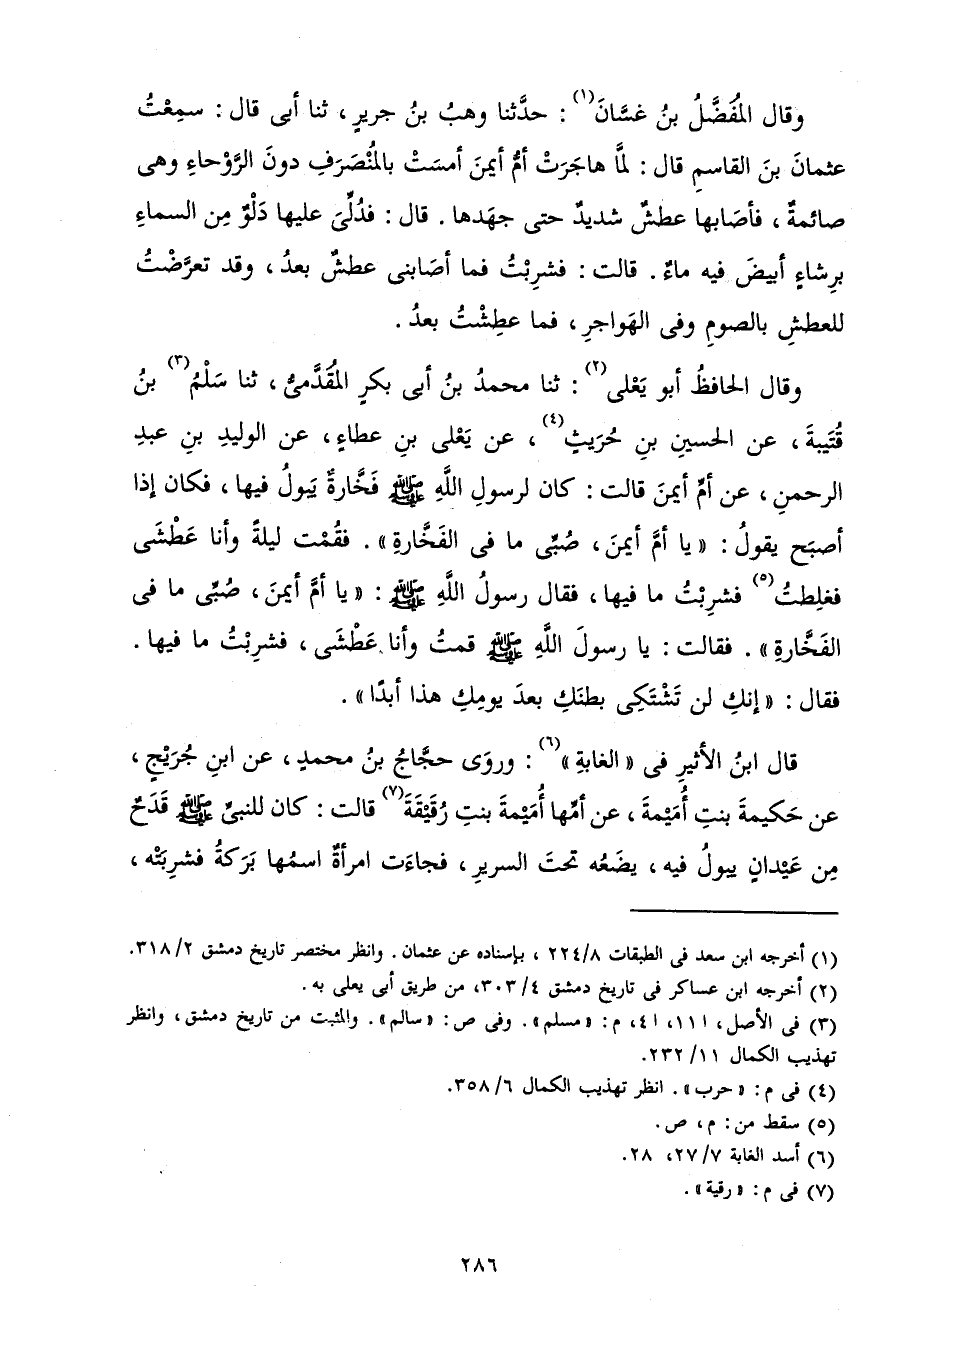 وقال المُفَضَّلُ بنُ غسَّانَ(١) : حدَّثنا وهبُ بنُ جريرٍ ، ثنا أبى قال : سمِعْتُ
عثمانَ بنَ القاسمِ قال : لمَّا هاجَرَتْ أمُّ أيمنَ أمسَتْ بالمُنْصَرَفِ دونَ الرَّوْحاءِ وهى
صائمةٌ ، فأصَابها عطشٌ شديدٌ حتى جهَدها . قال : فدُلِّىَ عليها دَلْوٌ مِن السماءِ
برِشاءٍ أبيضَ فيه ماءٌ . قالت : فشرِبْتُ فما أصَابنى عطشٌ بعدُ ، وقد تعرَّضْتُ
للعطشِ بالصومِ وفى الهَواجرِ ، فما عطِشْتُ بعدُ .
وقال الحافظُ أبو يَعْلى(٢) : ثنا محمدُ بنُ أبى بكرٍ المُقَدَّمىُّ ، ثنا سَلْمُ(٣) بنُ
قُتَيبةَ ، عن الحسينِ بنِ حُرَيثٍ(٤) ، عن يَعْلى بنِ عطاءٍ ، عن الوليدِ بنِ عبدِ
الرحمنِ ، عن أمِّ أيمنَ قالت : كان لرسولِ اللَّهِ ﷺ فَخَّارةٌ يَبولُ فيها ، فكان إذا
أصبَح يقولُ : « يا أمَّ أيمنَ ، صُبِّى ما فى الفَخَّارةِ » . فقُمْت ليلةً وأنا عَطْشَى
فغلِطتُ(٥) فشرِبْتُ ما فيها ، فقال رسولُ اللَّهِ ﷺ : « يا أمَّ أيمنَ ، صُبِّى ما فى
الفَخَّارةِ » . فقالت : يا رسولَ اللَّهِ ﷺ قمتُ وأنا عَطْشَى ، فشرِبْتُ ما فيها .
فقال : « إنكِ لن تَشْتَكِى بطنَكِ بعدَ يومِكِ هذا أبدًا » .
قال ابنُ الأثيرِ فى « الغابةِ »(٦) : وروَى حجَّاجُ بنُ محمدٍ ، عن ابنِ جُرَيْجٍ ،
عن حَكيمةَ بنتِ أُمَيْمةَ ، عن أمِّها أُمَيْمةَ بنتِ رُقَيْقَةَ(٧) قالت : كان للنبىِّ ﷺ قَدَحٌ
مِن عَيْدانٍ يبولُ فيه ، يضَعُه تحتَ السريرِ ، فجاءَت امرأةٌ اسمُها بَرَكةُ فشرِبَتْه ،
(١) أخرجه ابن سعد فى الطبقات ٢٢٤/٨ ، بإسناده عن عثمان . وانظر مختصر تاريخ دمشق ٣١٨/٢.
(٢) أخرجه ابن عساكر فى تاريخ دمشق ٣٠٣/٤، من طريق أبى يعلى به .
(٣) فى الأصل، ١١١، ٤١، م: «مسلم» . وفى ص: «سالم» . والمثبت من تاريخ دمشق ، وانظر
تهذيب الكمال ٢٣٢/١١.
(٤) فى م: «حرب» . انظر تهذيب الكمال ٣٥٨/٦.
(٥) سقط من: م، ص.
(٦) أسد الغابة ٢٧/٧، ٢٨.
(٧) فى م: «رقية» .
٢٨٦